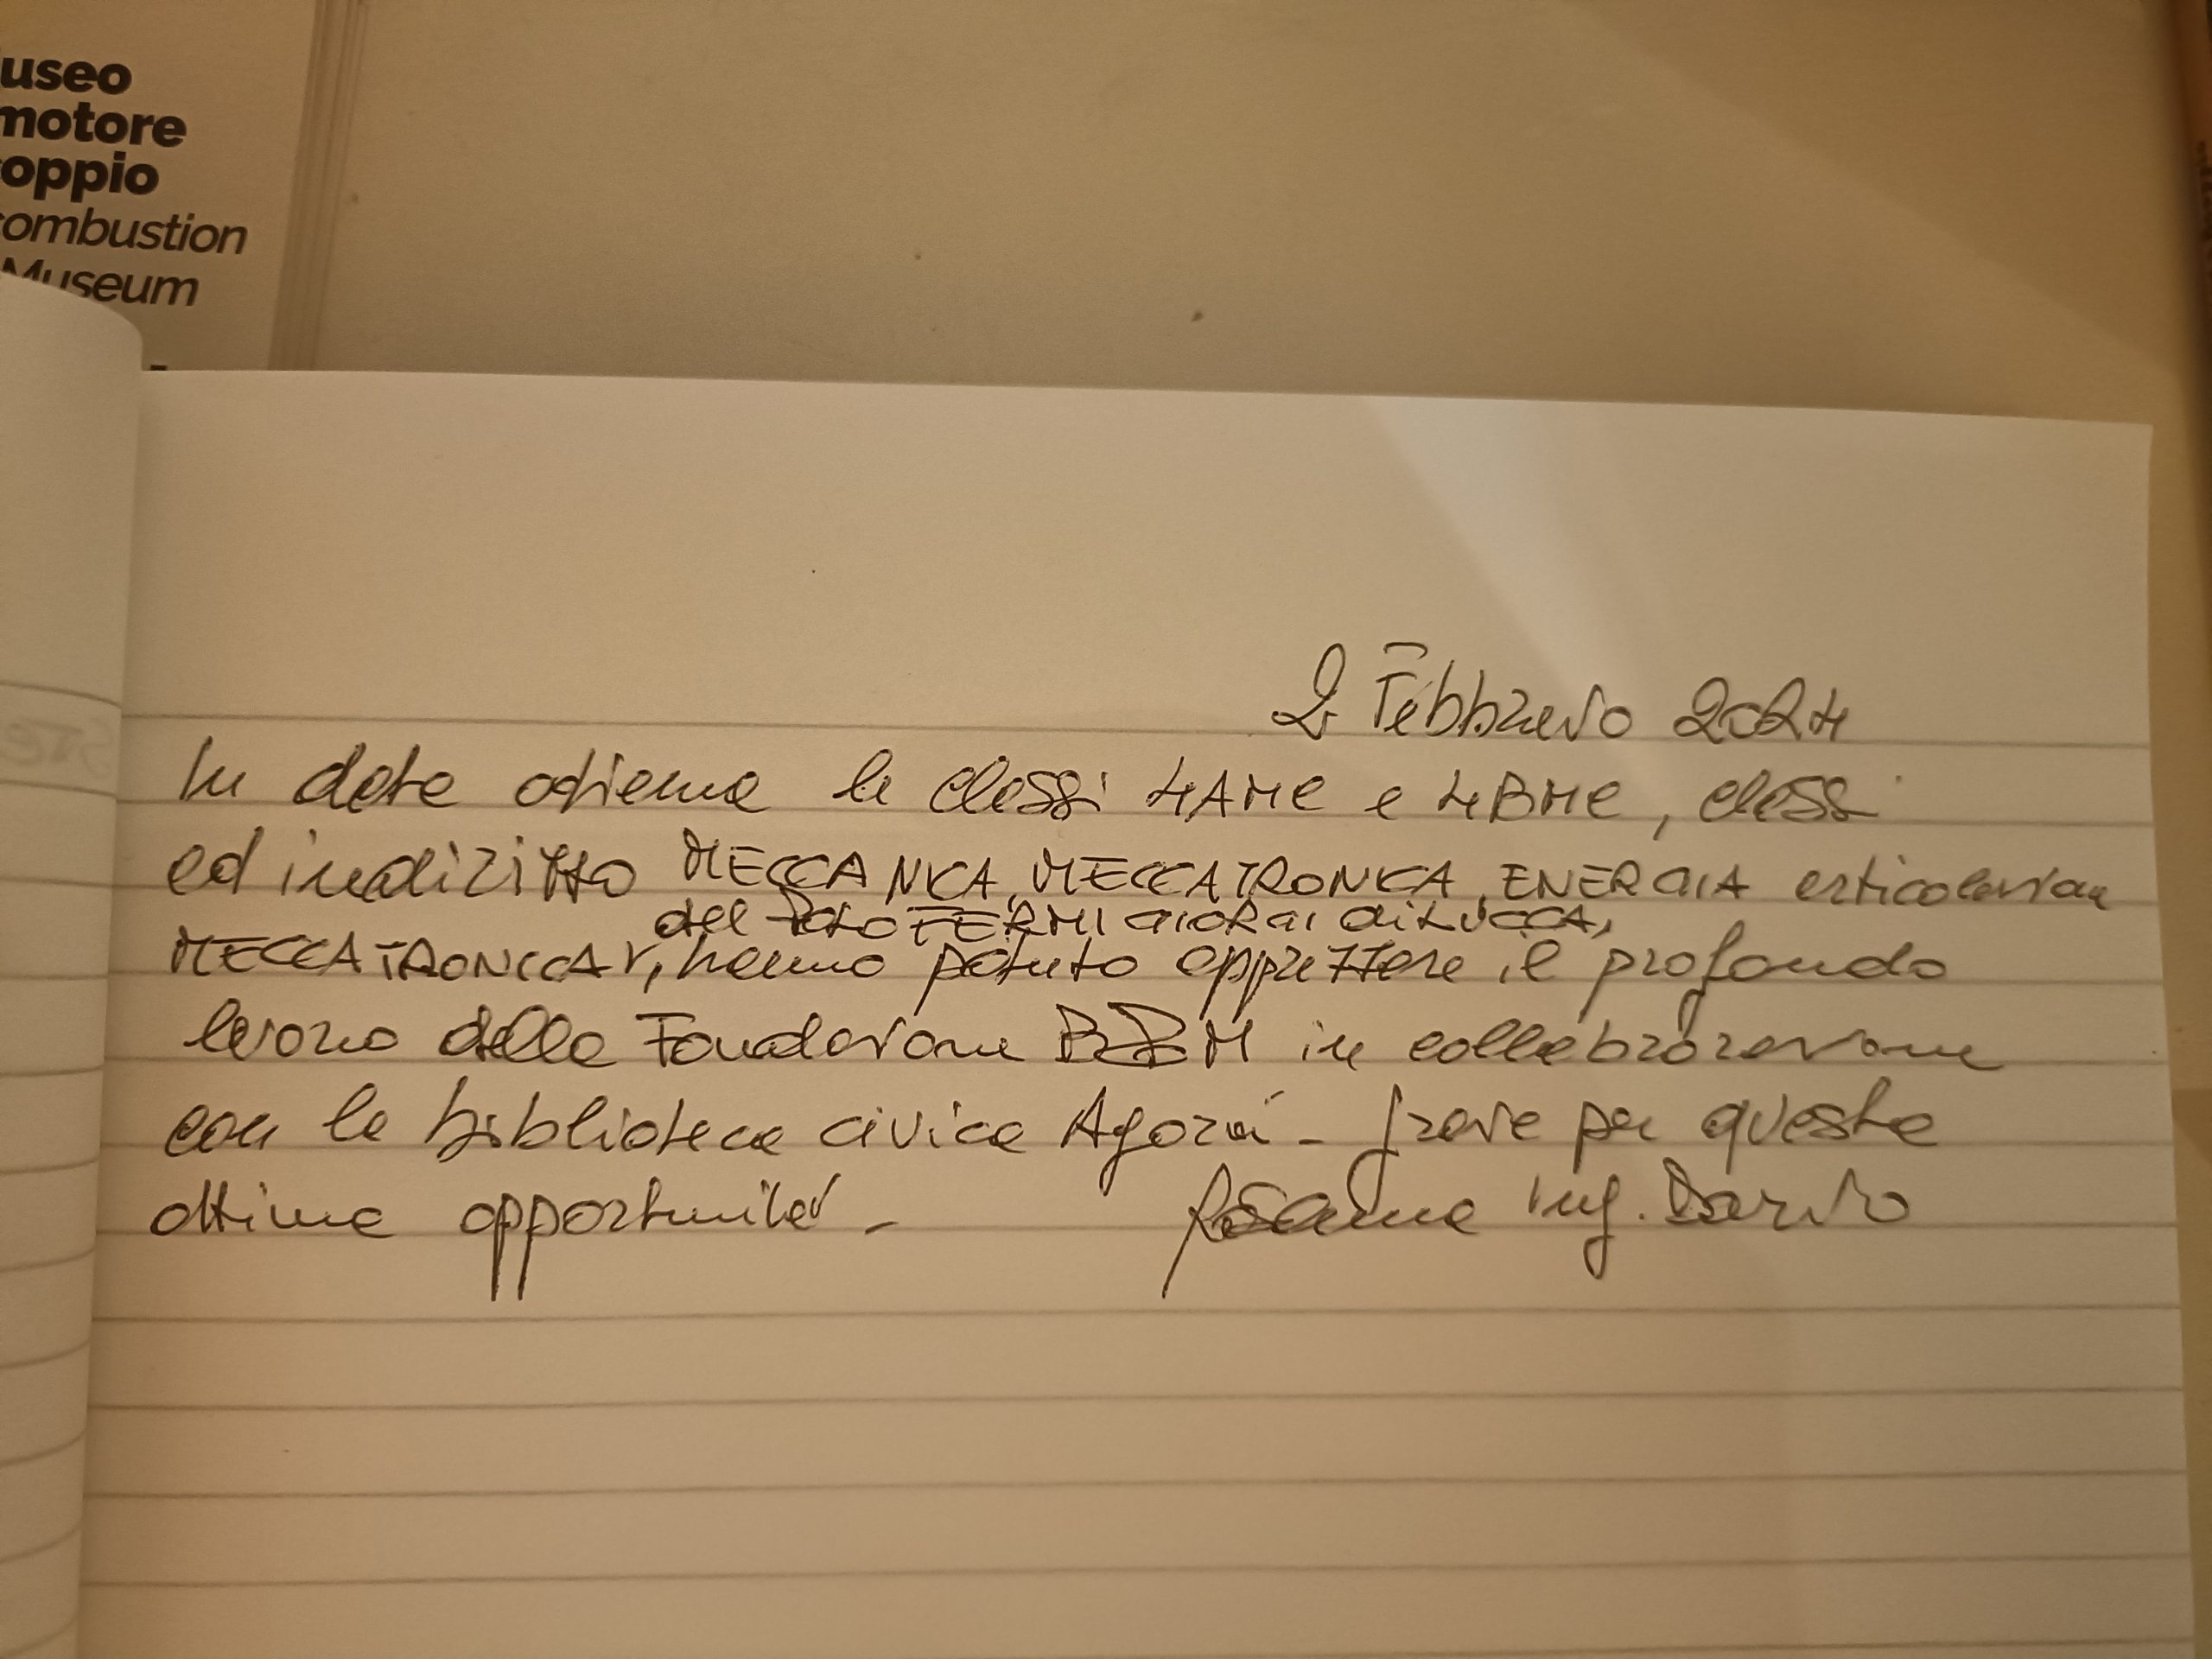 useo
motore
oppio
combustion
Museum
2 Febbraio 2024
In data odierna le classi 4AME e 4BME, classi
ad indirizzo MECCANICA, MECCATRONICA, ENERGIA articolazione
del Polo FERMI GIORGI di LUCCA,
MECCATRONICA, hanno potuto apprezzare il profondo
lavoro della Fondazione B&M in collaborazione
con la biblioteca civica Agorà - grazie per questa
ottima opportunità -
Ing. Dario